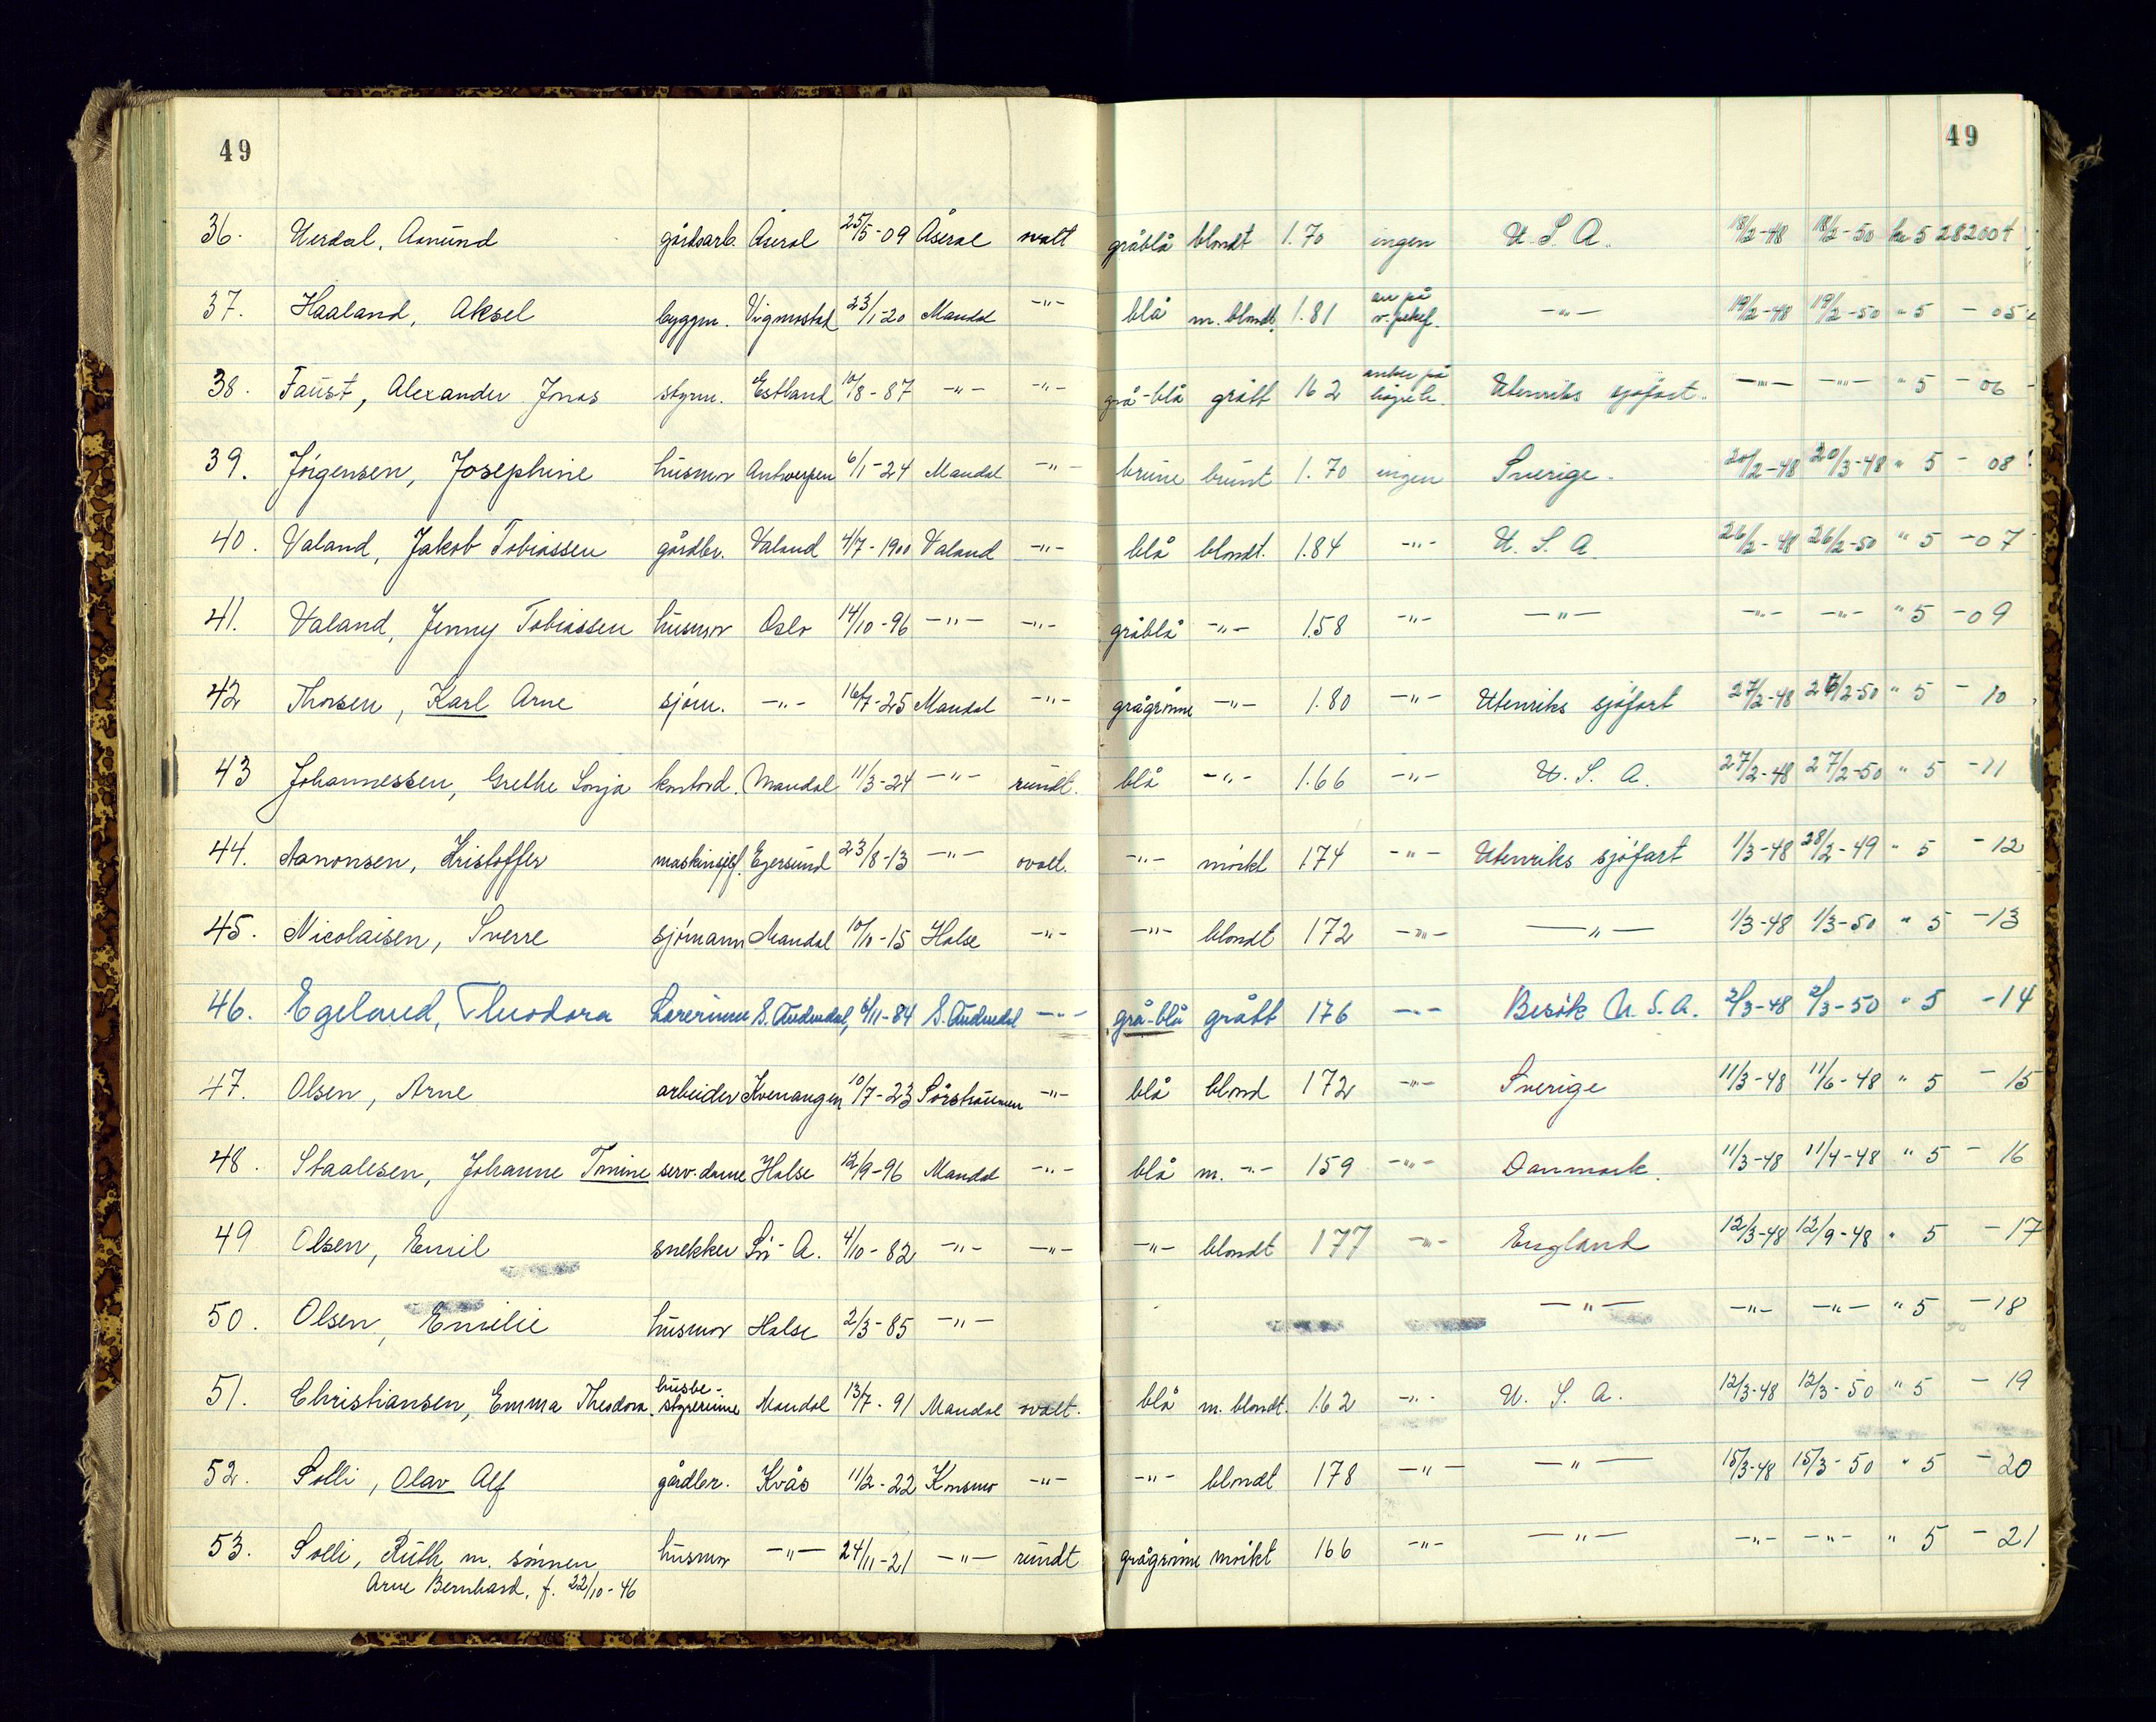 49 49
36. Uerdal, Asmund gårdsarb. Åseral 25/5-09 Åseral ovalt gråblå blondt 1.70 ingen U.S.A. 18/2-48 18/2-50 kr 5 282004
37. Haaland, Aksel byggm. Vigmostad 23/1-20 Mandal -"- blå m. blondt 1.81 arr på v. pekef. -"- 19/2-48 19/2-50 " 5 - 05
38. Faust, Alexander Jonas styrm. Estland 10/8-87 -"- -"- grå-blå grått 162 anker på Utenriks sjøfart. -"- -"- " 5 - 06
39. Jörgensen, Josephine husmor Antwerpen 6/1-24 Mandal -"- brune brunt 1.70 ingen Sverige. 20/2-48 20/3-48 " 5 - 08
40. Valand, Jakob Tobiassen gårdbr. Valand 4/7-1900 Valand -"- blå blondt. 1.84 -"- U.S.A 26/2-48 26/2-50 " 5 -07
41. Valand, Jenny Tobiassen husmor Oslo 14/10-96 -"- -"- gråblå -"- 1.58 -"- -"- -"- -"- " 5 -09
42 Thorsen, Karl Arne sjøm. -"- 16/7-25 Mandal -"- grågrønne -"- 1.80 -"- Utenriks sjøfart 27/2-48 26/2-50 " 5 - 10
43 Johannessen, Grethe Sonja kontord. Mandal 11/3-24 -"- rundt. blå -"- 1.66 -"- U.S.A. 27/2-48 27/2-50 " 5 -11
44. Aanonsen, Kristoffer maskinsjef. Egersund 23/8-13 -"- ovalt. -"- mörkt 174 -"- Utenriks sjöfart 1/3-48 28/2-49 " 5 -12
45. Nicolaisen, Sverre sjömann Mandal 10/11-15 Halse -"- -"- blondt 172 -"- -"- 1/3-48 1/3-50 " 5 -13
46. Egeland, Theodora Lærerinne S. Audnedal, 6/11-84 S. Audnedal -"- grå-blå grått 176 -"- Besök U.S.A. 2/3-48 2/3-50 " 5 -14
47. Olsen, Arne arbeider Kvenangen 10/7-23 -"- blå blond 172 -"- Sverige 11/3-48 11/6-48 " 5 - 15
48. Staalesen, Johanne Tomine serv.dame Halse 12/9-96 Mandal -"- blå m. -"- 159 -"- Danmark. 11/3-48 11/4-48 " 5 - 16
49 Olsen, Emil snekker Sör-A. 4/10-82 -"- -"- -"- blondt 177 -"- England 12/3-48 12/9-48 " 5 -17
50. Olsen, Emilie husmor Halse 2/3-85 -"- -"- -"- -"- " 5 -18
51. Christiansen, Emma Theodora. husbe-styrerinne Mandal 13/7-91 Mandal ovalt. blå m. blondt. 1.62 -"- U.S.A. 12/3-48 12/3-50 " 5 - 19
52. Solli, Olav Alf gårdbr. Kvås 11/2-22 Konsmo -"- -"- blondt 178 -"- -"- 15/3-48 15/3-50 " 5 - 20
53. Solli, Ruth m. sönnen husmor -"- 24/11-21 -"- rundt grågrønne mörkt 166 -"- -"- -"- -"- " 5 - 21
Arne Bernhard, f. 22/10-46